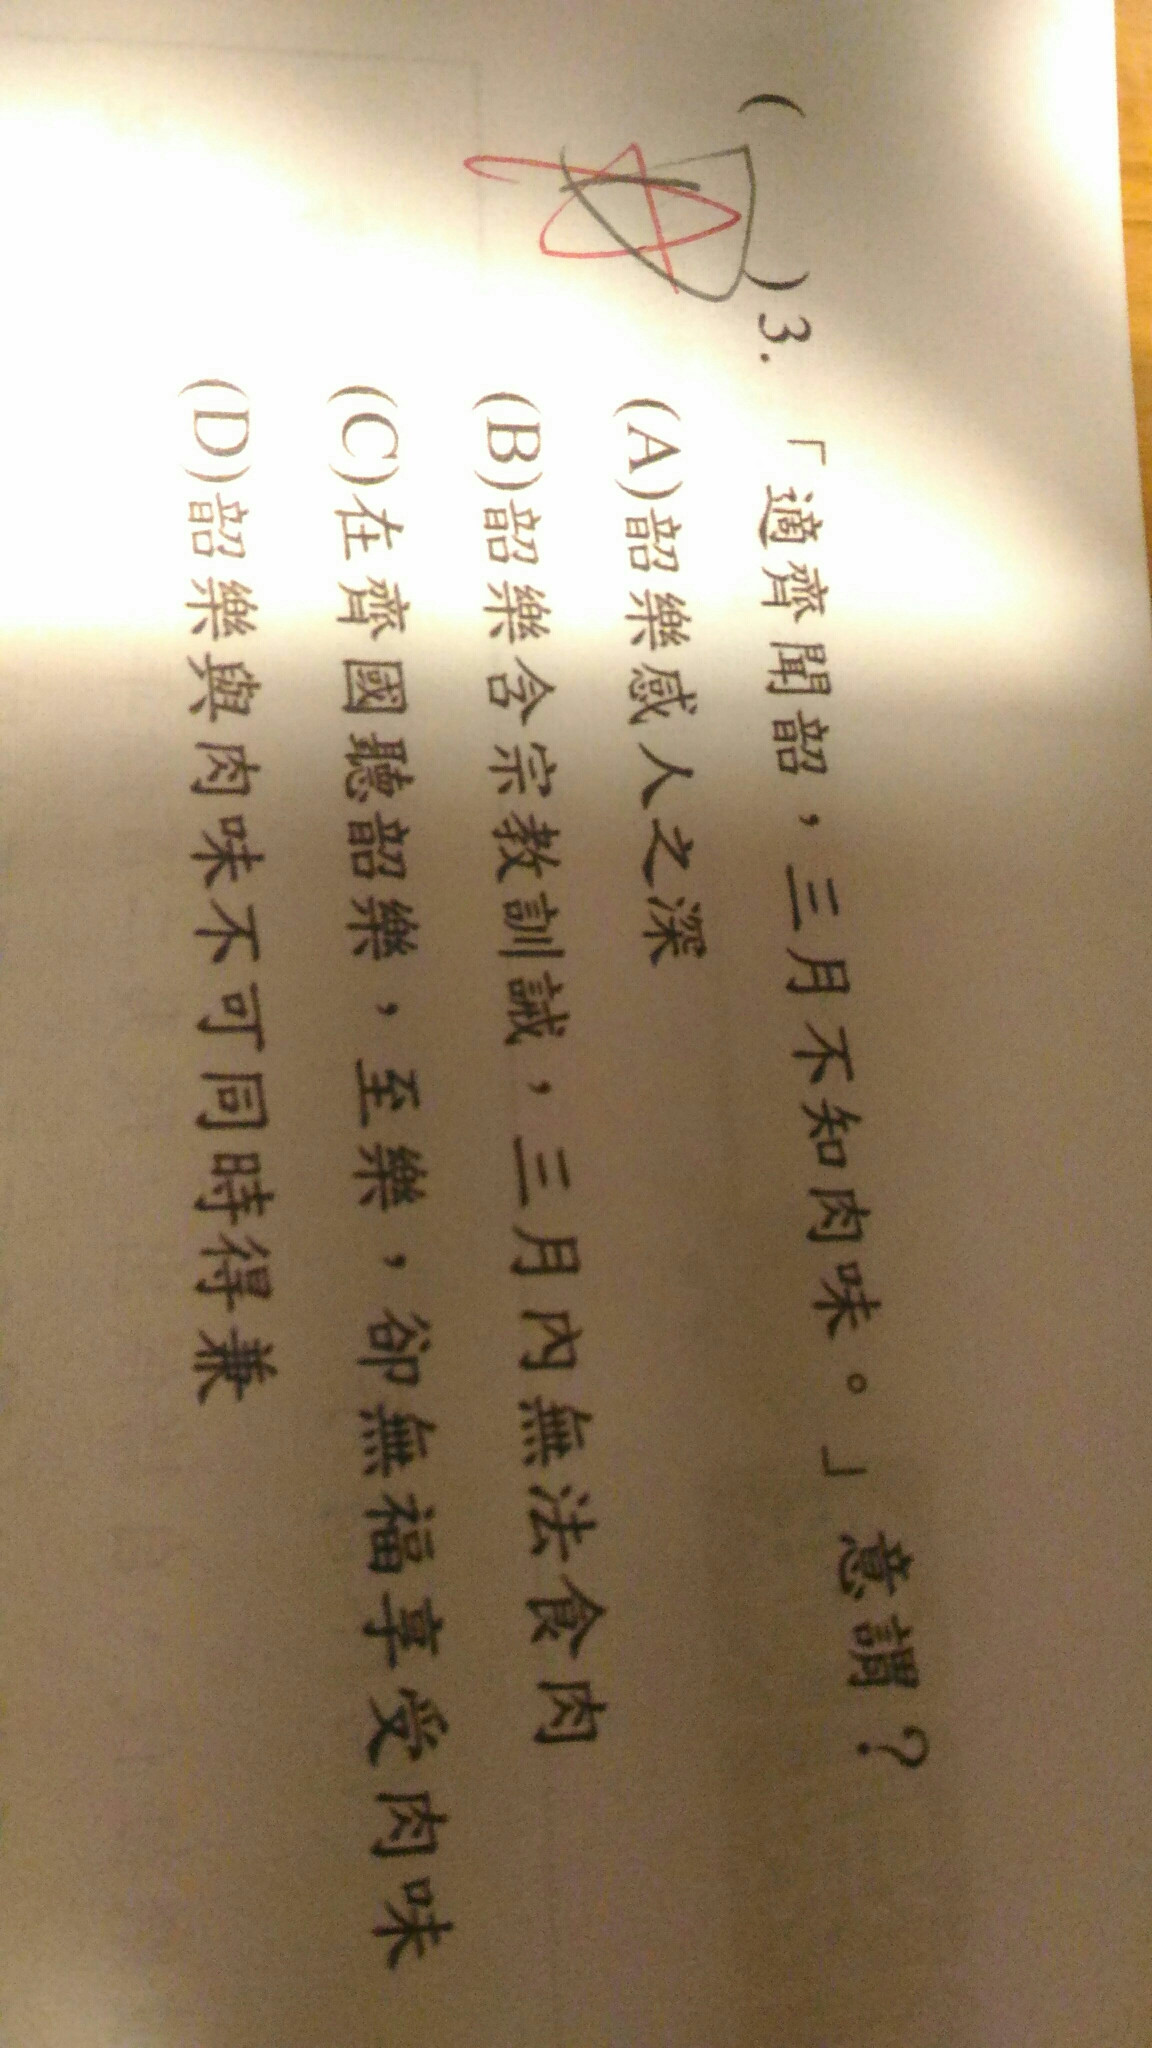 ( )3.「適齊聞韶，三月不知肉味。」意謂？
(A)韶樂感人之深
(B)韶樂含宗教訓誡，三月內無法食肉
(C)在齊國聽韶樂，至樂，卻無福享受肉味
(D)韶樂與肉味不可同時得兼